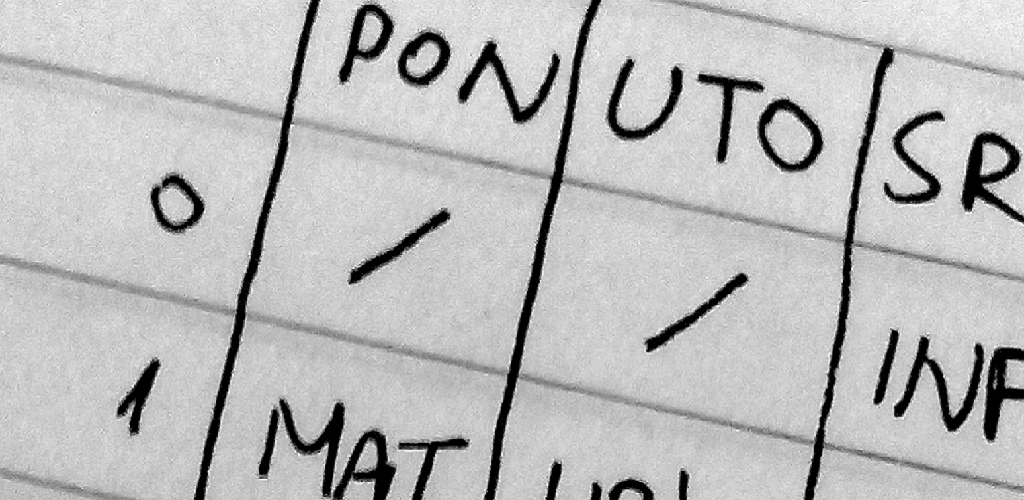 PON UTO SR
0 / / INF
1 MAT